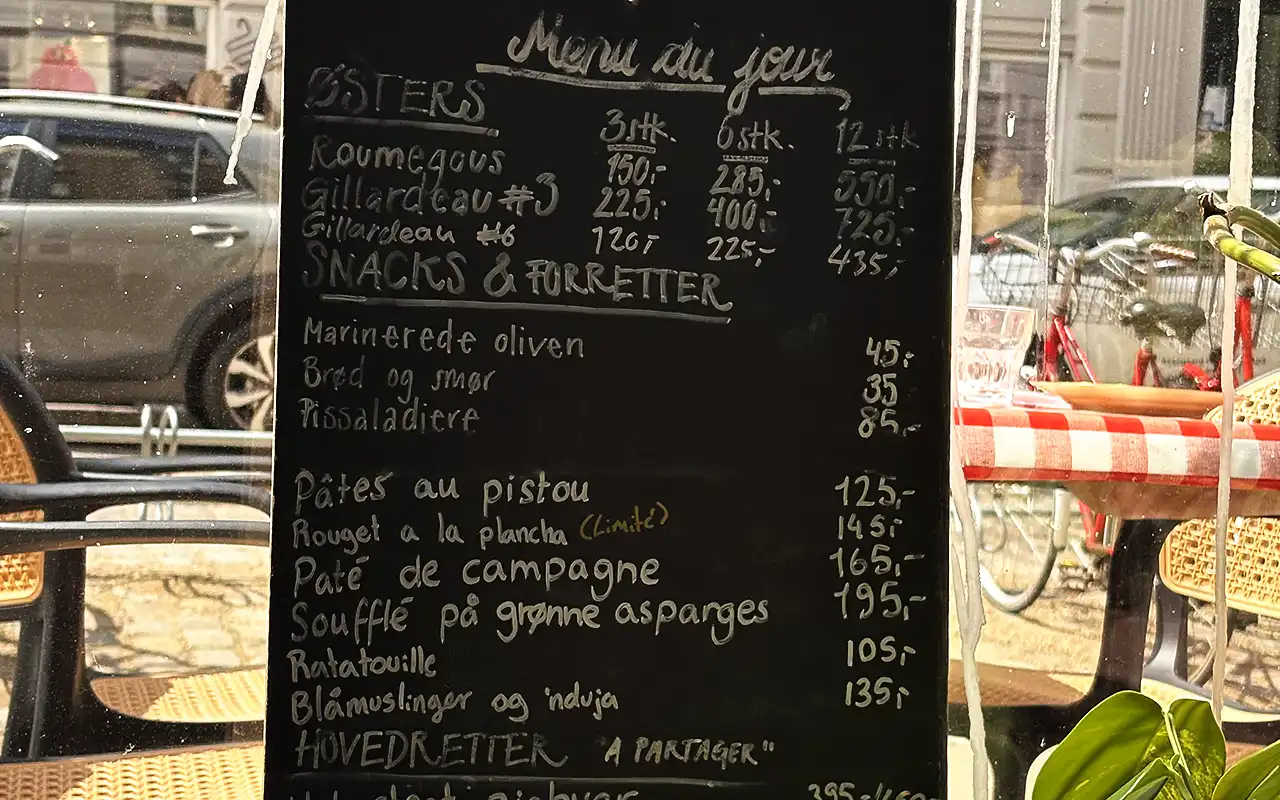 Menu du jour
ØSTERS
3 stk. 6 stk. 12 stk
Roumegous 150,- 285,- 550,-
Gillardeau #3 225,- 400,- 725,-
Gillardeau #6 120,- 225,- 435,-
SNACKS & FORRETTER
Marinerede oliven 45,-
Brød og smør 35
Pissaladiere 85,-
Pâtes au pistou 125,-
Rouget a la plancha (Limité) 145,-
Paté de campagne 165,-
Soufflé på grønne asparges 195,-
Ratatouille 105,-
Blåmuslinger og 'nduja 135,-
HOVEDRETTER "A PARTAGER"